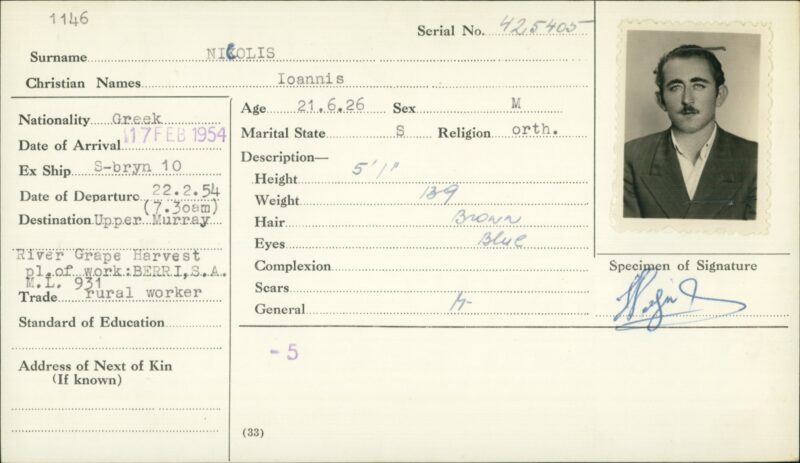 1146
Serial No. 425405
Surname NIKOLIS
Christian Names Ioannis
Nationality Greek
Date of Arrival 17 FEB 1954
Ex Ship S-bryn 10
Date of Departure 22.2.54
(7.30am)
Destination Upper Murray
River Grape Harvest
pl.of work:BERRI,S.A.
M.L. 931
Trade rural worker
Standard of Education
Address of Next of Kin
(If known)
Age 21.6.26 Sex M
Marital State S Religion orth.
Description—
Height 5'1"
Weight 139
Hair Brown
Eyes Blue
Complexion
Scars
General
- 5
(33)
Specimen of Signature